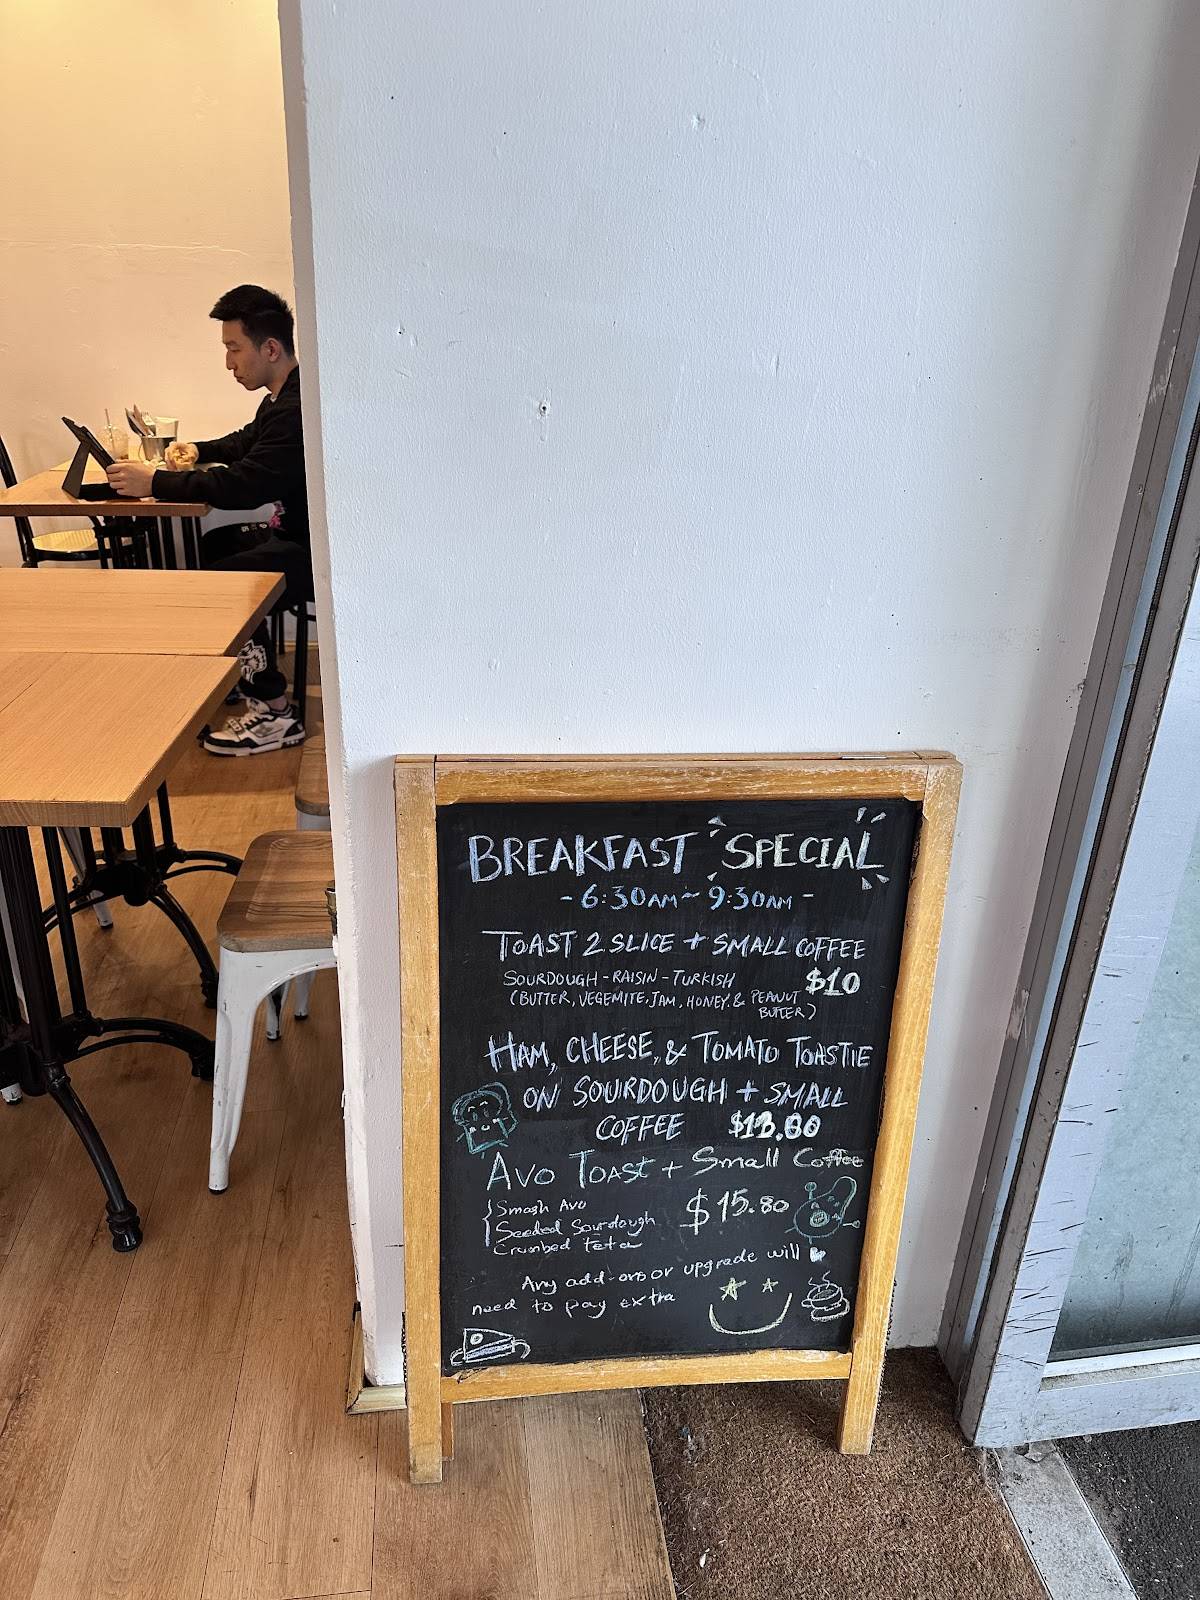 BREAKFAST SPECIAL
- 6:30AM ~ 9:30AM -
TOAST 2 SLICE + SMALL COFFEE
SOURDOUGH - RAISIN - TURKISH $10
(BUTTER, VEGEMITE, JAM, HONEY, & PEANUT
BUTTER)
HAM, CHEESE, & TOMATO TOASTIE
ON SOURDOUGH + SMALL
COFFEE
AVO TOAST + Small Coffee
Smash Avo
$15.80
Seeded Sourdough
Crumbed feta
Any add-ons or upgrade will
need to pay extra